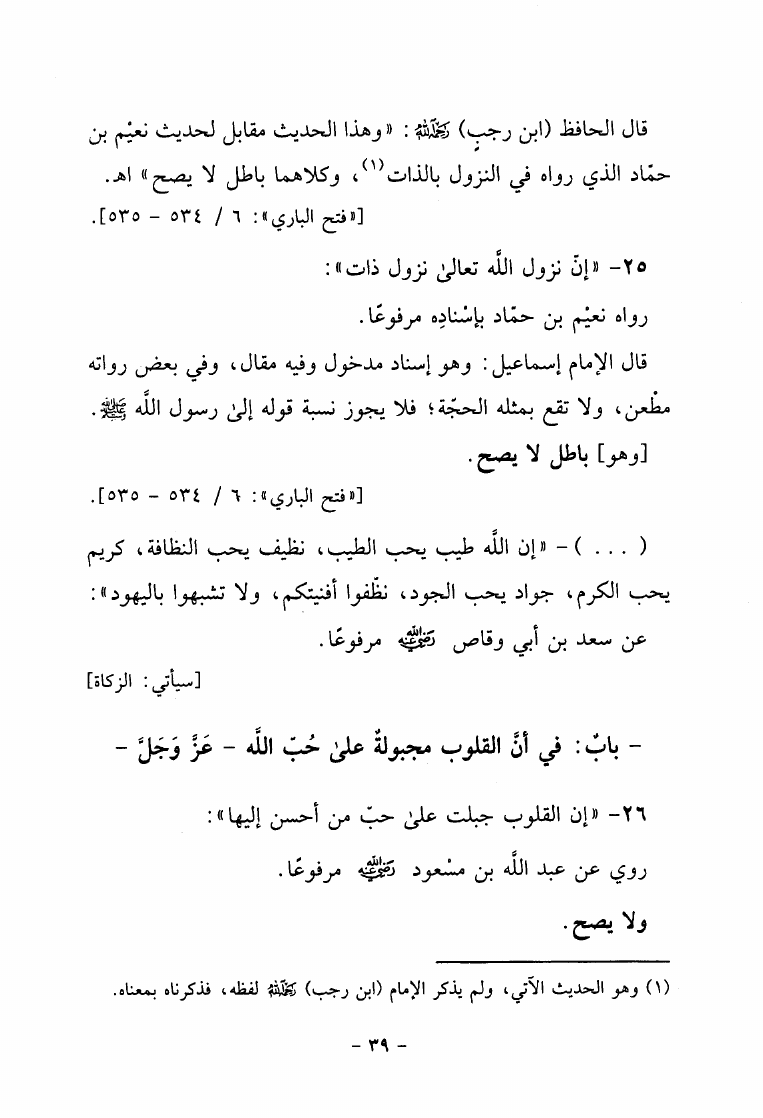 قال الحافظ (ابن رجبٍ) رَحِمَهُ اللهُ : «وهذا الحديث مقابل لحديث نعيْم بن
حمّاد الذي رواه في النزول بالذات(١)، وكلاهما باطل لا يصح» اهـ.
[«فتح الباري»: ٦ / ٥٣٤ - ٥٣٥].
٢٥- «إنّ نزول اللَّه تعالىٰ نزول ذات»:
رواه نعيْم بن حمّاد بإسْنادِه مرفوعًا.
قال الإمام إسماعيل: وهو إسناد مدخول وفيه مقال، وفي بعض رواته
مطْعن، ولا تقع بمثله الحجّة؛ فلا يجوز نسبة قوله إلىٰ رسول اللَّه ﷺ.
[وهو] باطل لا يصح.
[«فتح الباري»: ٦ / ٥٣٤ - ٥٣٥].
( . . . ) - «إن اللَّه طيب يحب الطيب، نظيف يحب النظافة، كريم
يحب الكرم، جواد يحب الجود، نظّفوا أفنيتكم، ولا تشبهوا باليهود»:
عن سعد بن أبي وقاص رَضِيَ اللهُ عَنْهُ مرفوعًا.
[سيأتي: الزكاة]
- بابٌ: في أنَّ القلوب مجبولةٌ علىٰ حُبّ اللَّه - عَزَّ وَجَلَّ -
٢٦- «إن القلوب جبلت علىٰ حبّ من أحسن إليها»:
روي عن عبد اللَّه بن مسْعود رَضِيَ اللهُ عَنْهُ مرفوعًا.
ولا يصح.
(١) وهو الحديث الآتي، ولم يذكر الإمام (ابن رجب) رَحِمَهُ اللهُ لفظه، فذكرناه بمعناه.
- ٣٩ -